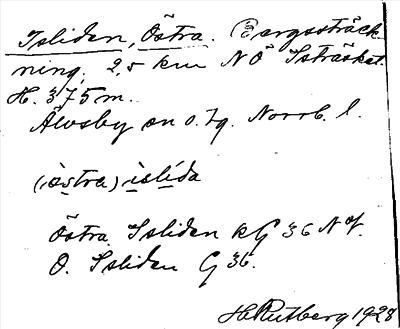 Isliden, Östra. Bergssträck
ning, 2,5 km NÖ Isträsket.
H. 375 m.
Älvsby sn o. tg. Norrb. l.
(östra) islida
Östra Isliden kG 36 NV.
Ö. Isliden G 36.
H. Rutberg 1928